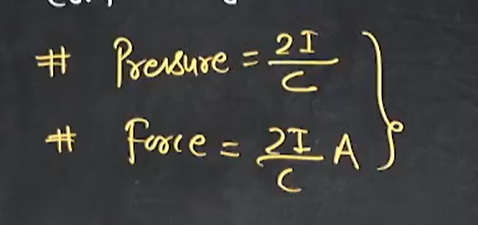 # Pressure = 2I/C
# Force = 2I/C A